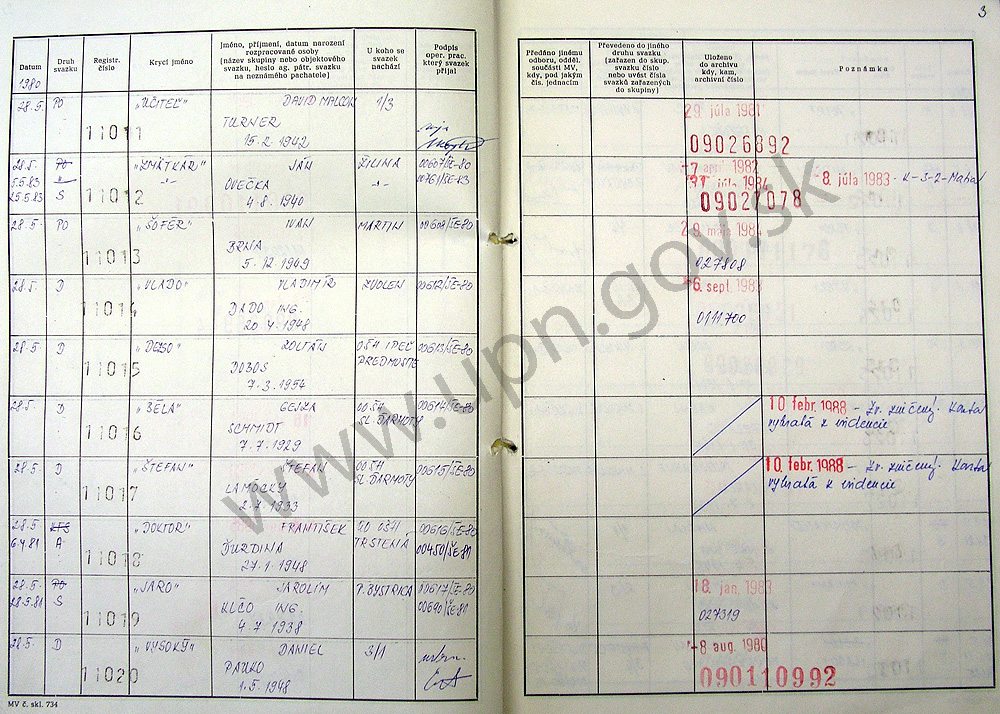 3
Datum
Druh svazku
Registr. číslo
Krycí jméno
Jméno, příjmení, datum narození rozpracované osoby (název skupiny nebo objektového svazku, heslo ag. pátr. svazku na neznámého pachatele)
U koho se svazek nachází
Podpis oper. prac. který svazek přijal
Předáno jinému odboru, odděl. součásti MV, kdy, pod jakým čís. jednacím
Převedeno do jiného druhu svazku (zařazen do skup. svazku číslo nebo uvést čísla svazků zařazených do skupiny)
Uloženo do archivu kdy, kam, archivní číslo
Poznámka
1980
28.5. PO 11011 „UČITEĽ" DAVID MALCOM 1/3
TURNER
15.2.1942
29. júla 1981
09026892
28.5. PO 11012 „ZMÄTKÁR" JÁN ŽILINA 00607/ŠE-80
5.5.83 -"- -"- 00761/ŠE-83
25.5.83 S OVEČKA
4.8.1940
-7. apr. 1982
júla 1984 -8. júla 1983 - K-3-2-
09027078
28.5. PO 11013 „ŠOFÉR" IVAN MARTIN 00608/ŠE-80
BRNA
5.12.1949
29. mája 1984
027808
28.5. D 11014 „VLADO" VLADIMÍR ZVOLEN 00612/ŠE-80
DADO ING.
20.4.1948
-6. sept. 1983
0111700
28.5. D 11015 ZOLTÁN OŠH IPEĽ. PREDMOSTIE 00613/ŠE-80
DOBOS
7.3.1954
28.5. D 11016 „BÉLA" GEJZA OOŠH SL. ĎARMOTY 00614/ŠE-80
SCHMIDT
7.7.1929
10. febr. 1988 - Zv. zničený. Karta
vybratá z evidencie
28.5. D 11017 „ŠTEFAN" ŠTEFAN OOŠH SL. ĎARMOTY 00615/ŠE-80
LAMOCKY
2.7.1933
10. febr. 1988 - Zv. zničený. Karta
vybratá z evidencie
28.5. 11018 „DOKTOR" FRANTIŠEK TRSTENÁ 00616/ŠE-80
6.4.81 A ĎURDINA 00450/ŠE-81
27.1.1948
28.5. PO 11019 „JARO" JAROLÍM P. BYSTRICA 00617/ŠE-80
28.5.81 S KLČO ING. 00690/ŠE-81
4.7.1938
18. jan. 1983
027319
28.5. D 11020 „VYSOKÝ" DANIEL 3/1
PAVKO
1.5.1948
-8. aug. 1980
090110992
MV č. skl. 734
www.upn.gov.sk